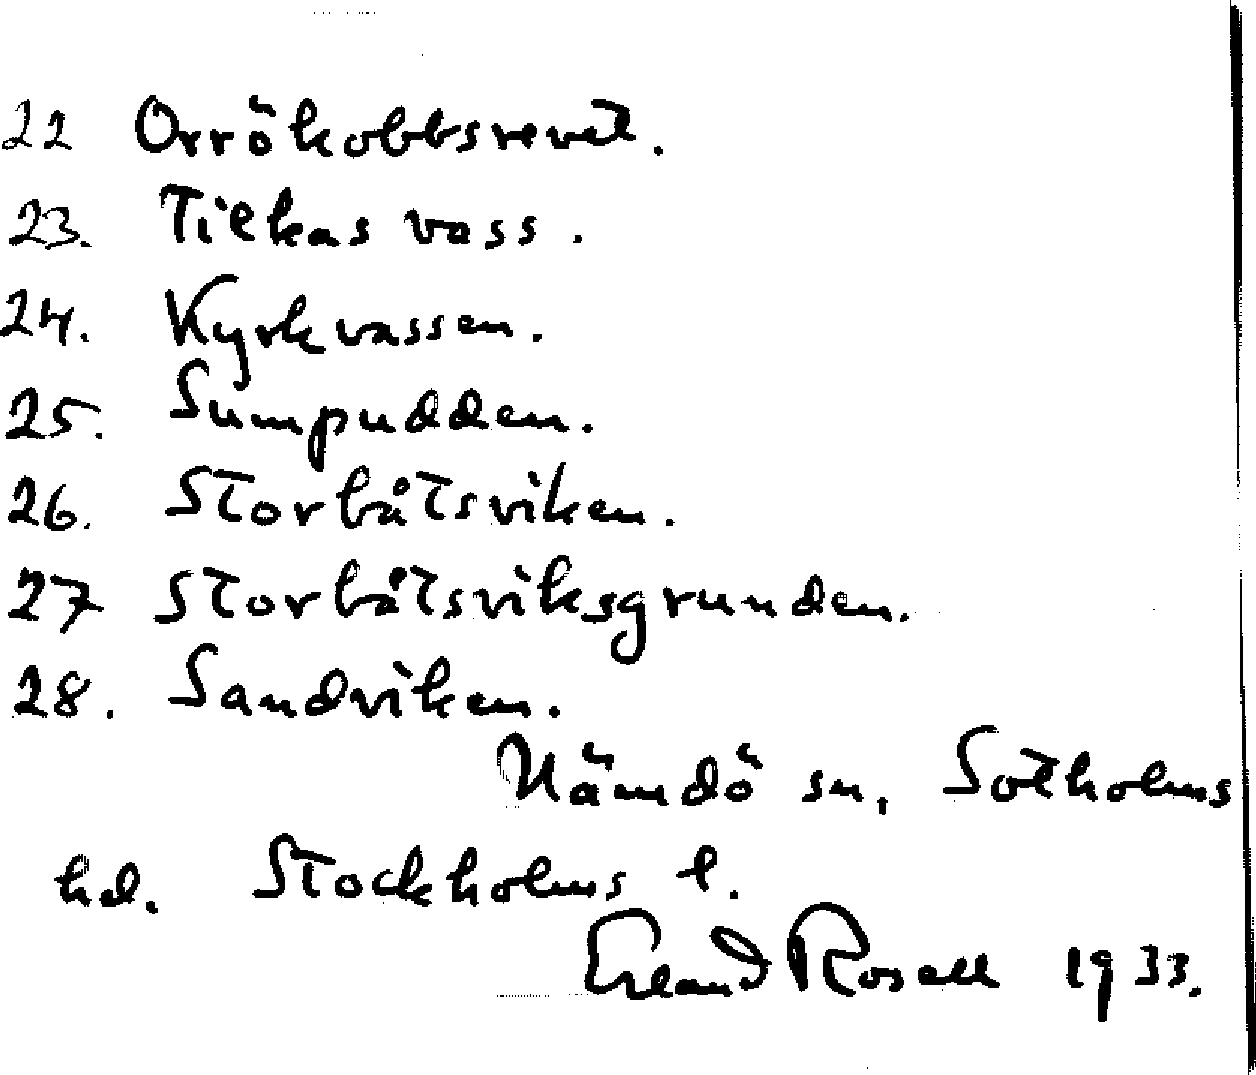 22 Orrökobbsrevet.
23. Tilkas vass.
24. Kyrkvassen.
25. Sumpudden.
26. Storbåtsviken.
27 Storbåtsviksgrunden.
28. Sandviken.
Nämdö sn, Sotholms
hd. Stockholms l.
Erland Rosell 1933.